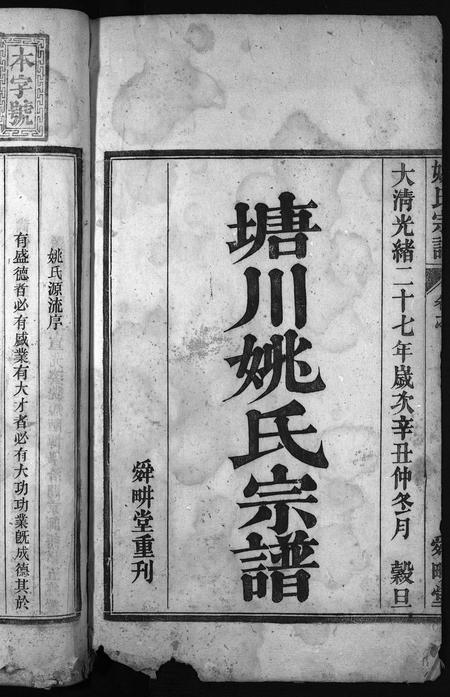 姚氏宗譜
舜畊堂
大清光緒二十七年歲次辛丑仲冬月 穀旦
塘川姚氏宗譜
舜畊堂重刊
本字號
姚氏源流序
有盛德者必有盛業有大才者必有大功功業旣成德其於